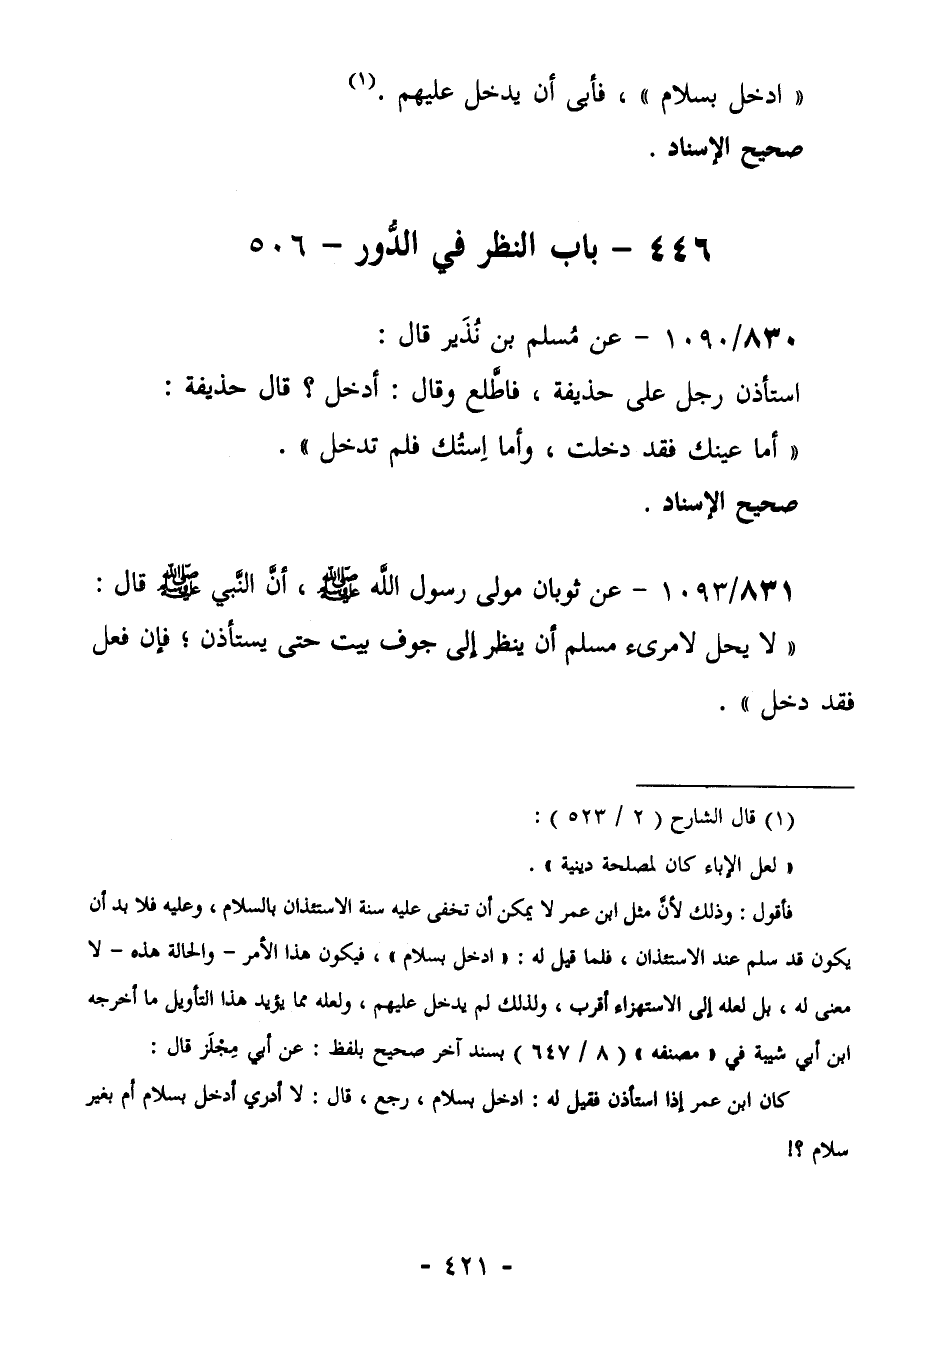 « ادخل بسلام » ، فأبى أن يدخل عليهم .(١)
صحيح الإسناد .
٤٤٦ – باب النظر في الدُّور – ٥٠٦
١٠٩٠/٨٣٠ – عن مُسلم بن نُذَير قال :
استأذن رجل على حذيفة ، فاطَّلع وقال : أدخل ؟ قال حذيفة :
« أما عينك فقد دخلت ، وأما اِستُك فلم تدخل » .
صحيح الإسناد .
١٠٩٣/٨٣١ – عن ثوبان مولى رسول اللَّه ﷺ ، أنَّ النَّبي ﷺ قال :
« لا يحل لامرىء مسلم أن ينظر إلى جوف بيت حتى يستأذن ؛ فإن فعل
فقد دخل » .
(١) قال الشارح ( ٢ / ٥٢٣ ) :
« لعل الإباء كان لمصلحة دينية » .
فأقول : وذلك لأنَّ مثل ابن عمر لا يمكن أن تخفى عليه سنة الاستئذان بالسلام ، وعليه فلا بد أن
يكون قد سلم عند الاستئذان ، فلما قيل له : « ادخل بسلام » ، فيكون هذا الأمر – والحالة هذه – لا
معنى له ، بل لعله إلى الاستهزاء أقرب ، ولذلك لم يدخل عليهم ، ولعله مما يؤيد هذا التأويل ما أخرجه
ابن أبي شيبة في « مصنفه » ( ٨ / ٦٤٧ ) بسند آخر صحيح بلفظ : عن أبي مِجْلَز قال :
كان ابن عمر إذا استأذن فقيل له : ادخل بسلام ، رجع ، قال : لا أدري أدخل بسلام أم بغير
سلام ؟!
- ٤٢١ -